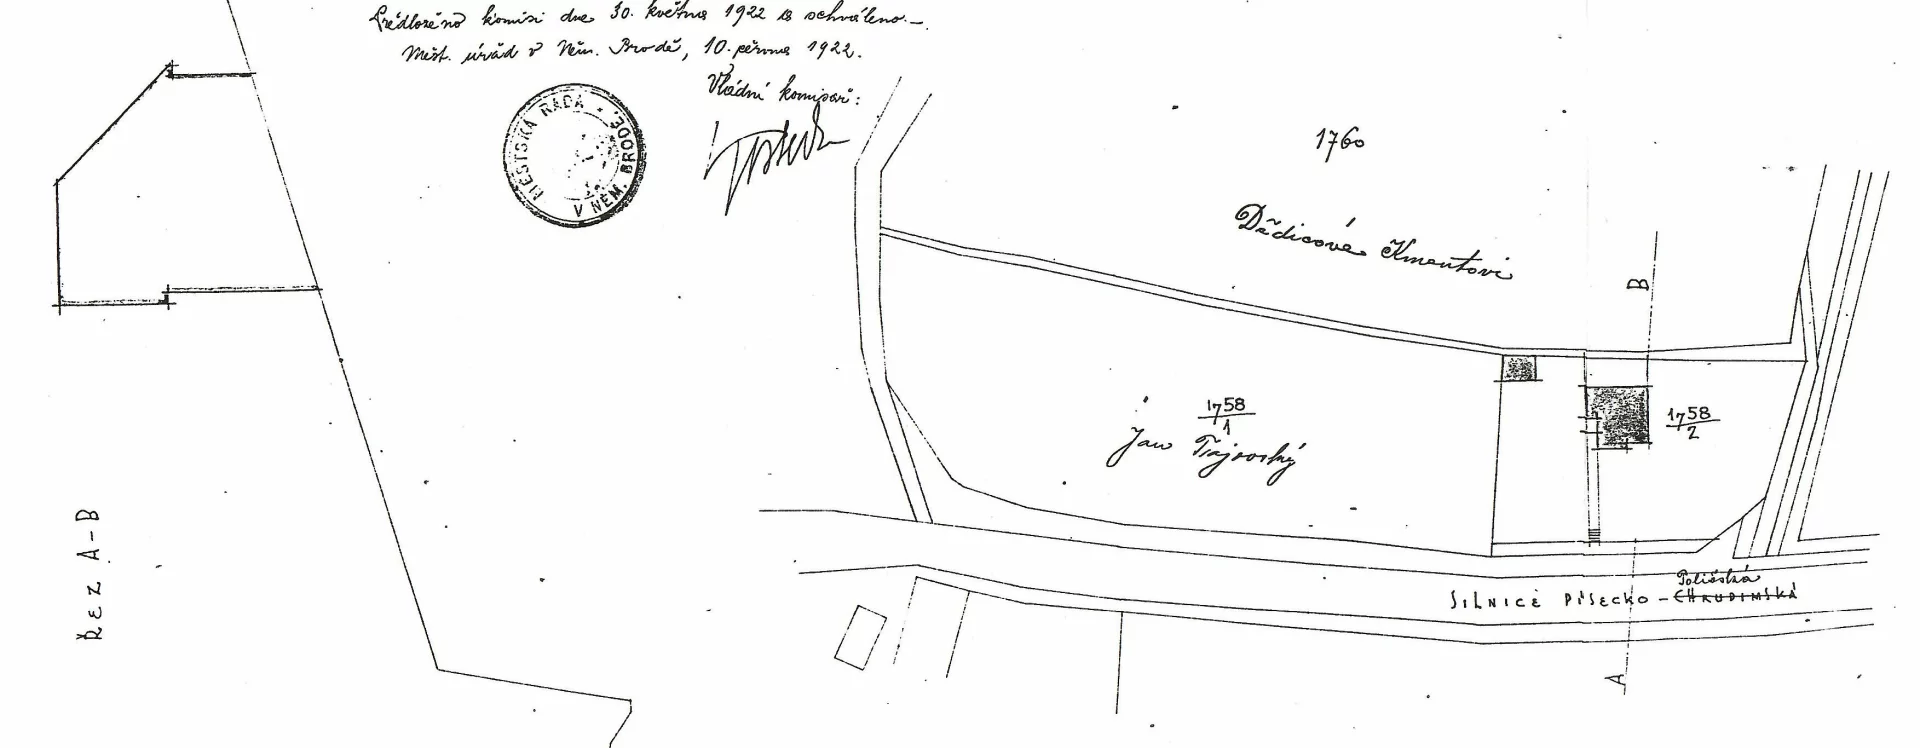 Předloženo komisi dne 30. května 1922 a schváleno.—
Měst. úřad v Něm. Brodě, 10. června 1922.
Vládní komisař:
MĚSTSKÁ RADA
V NĚM. BRODĚ.
1760
Dědicové Kmentovi
B
1758/1
Jan
1758/2
Poličská
SILNICE PÍSECKO – CHRUDIMSKÁ
A
ŘEZ A-B